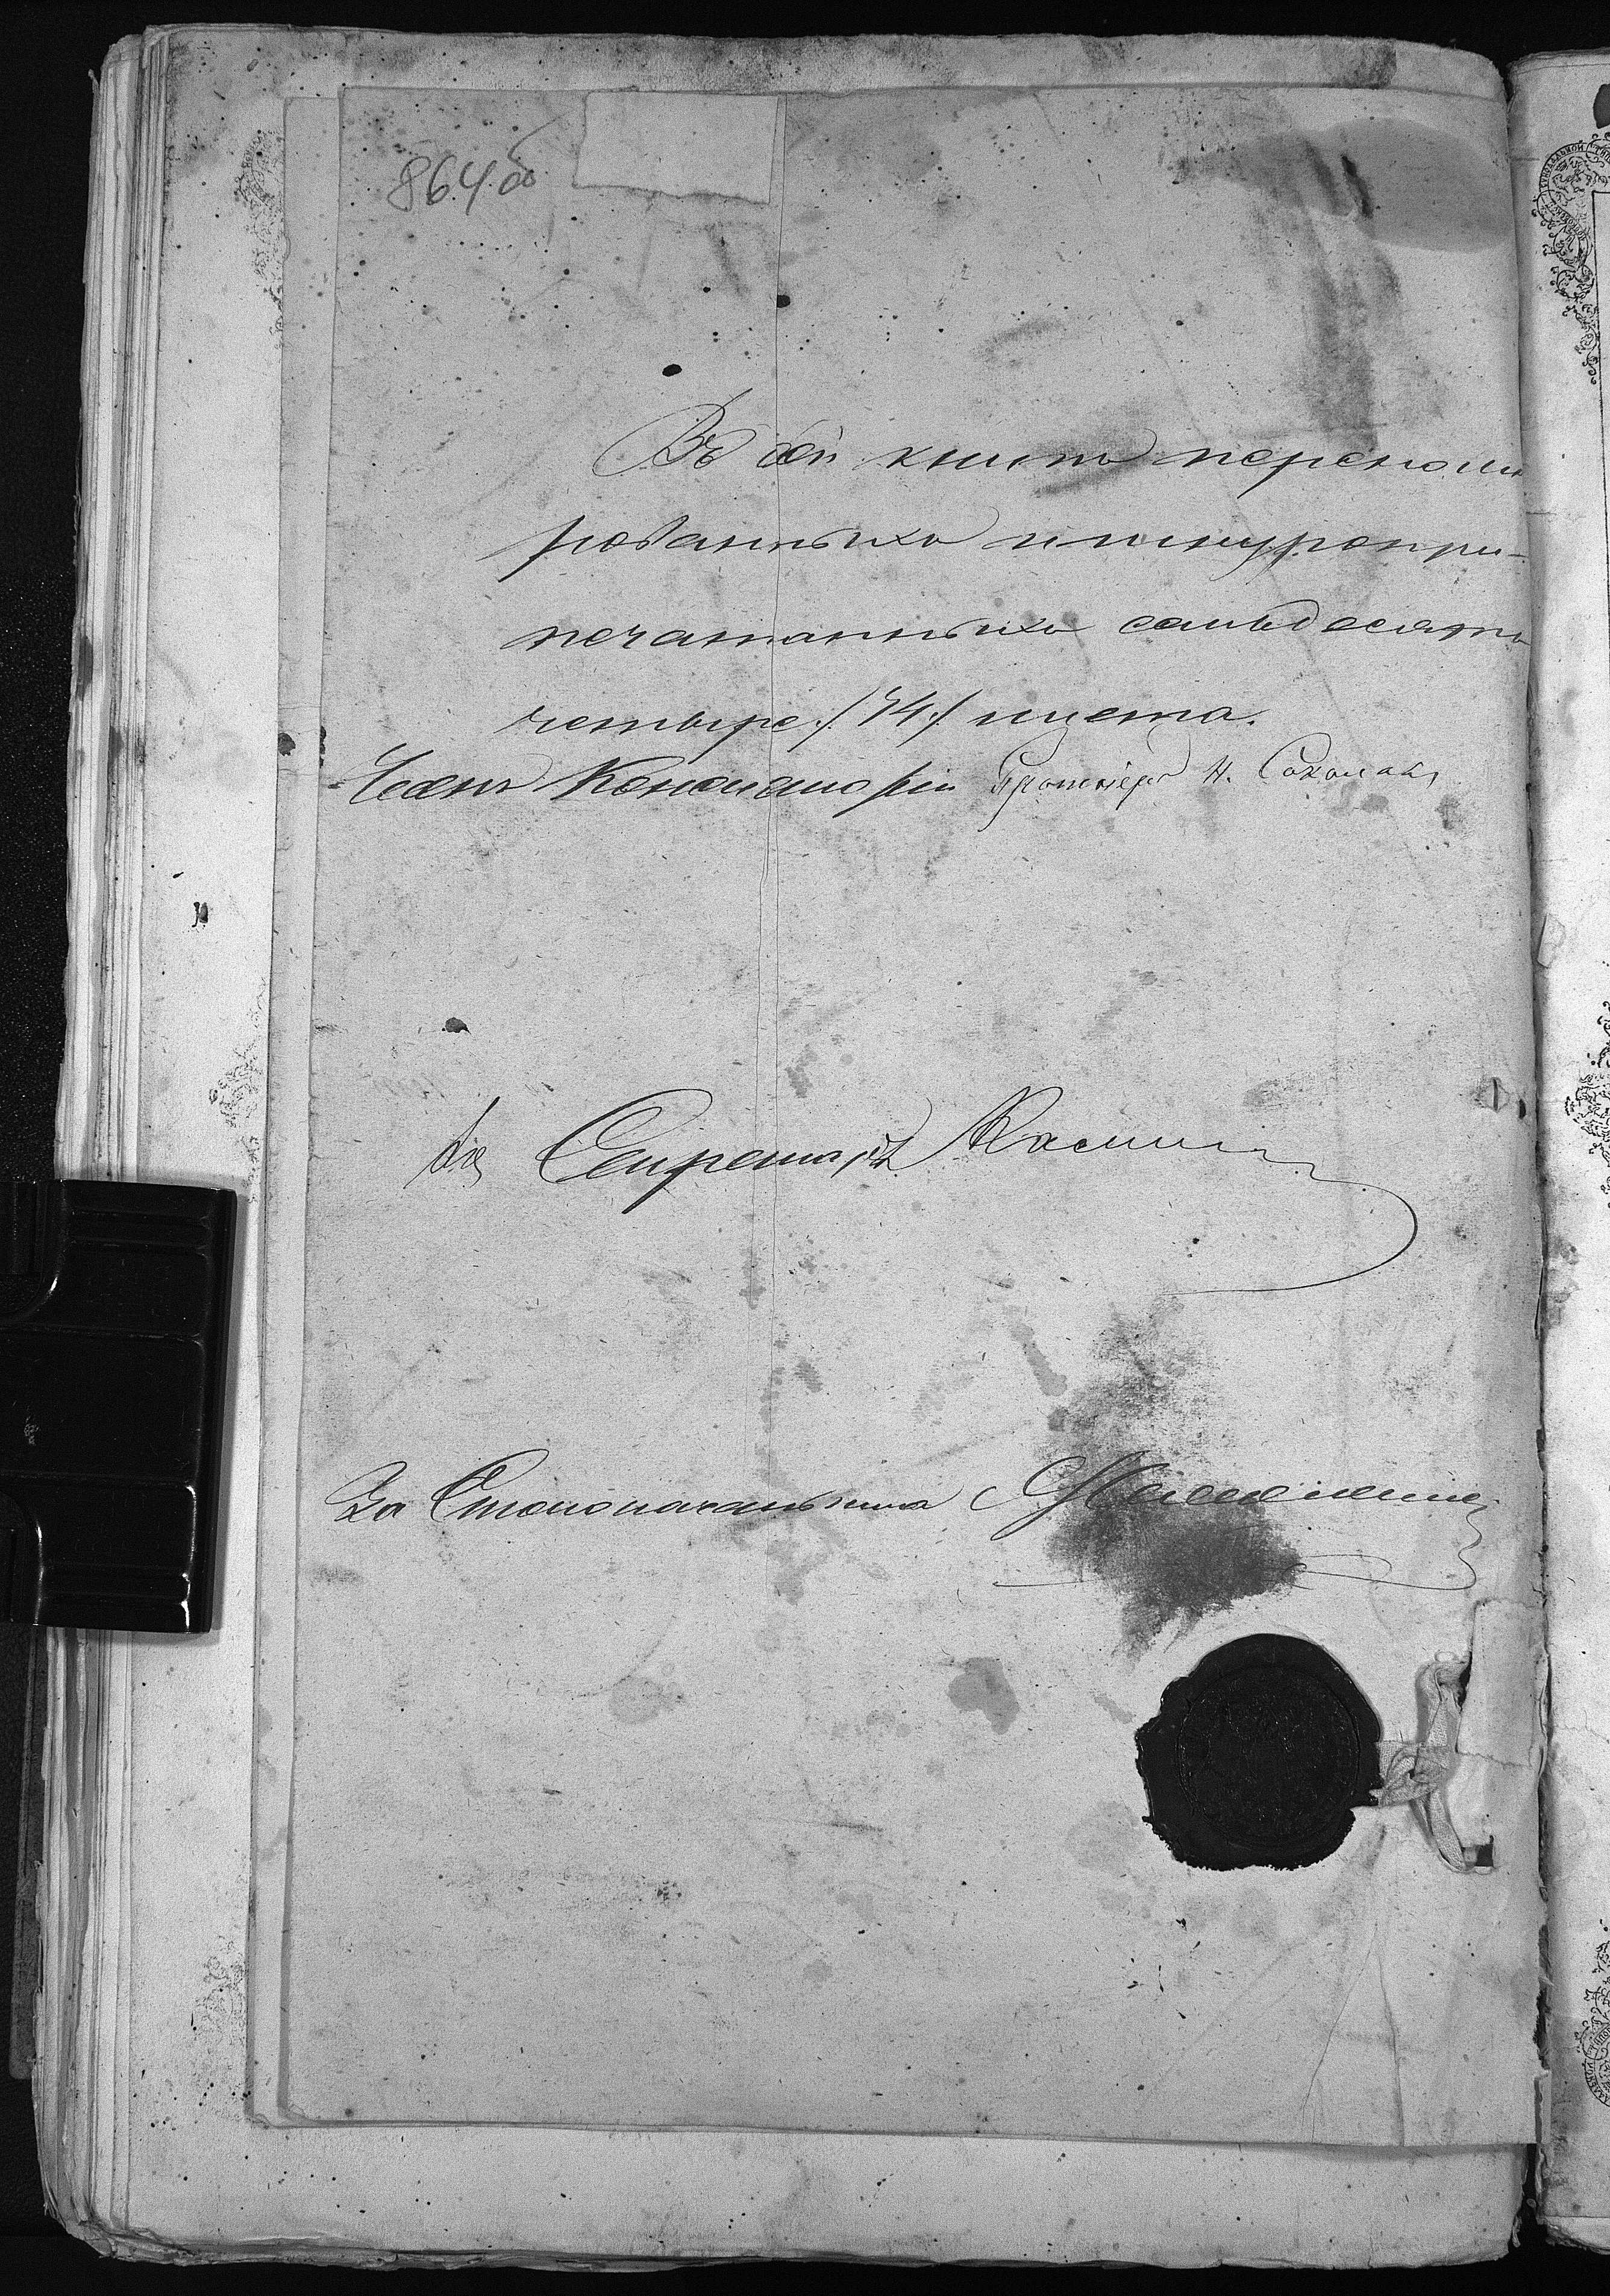 864 об
Въ сей книгѣ перенуме
рованныхъ и шнуропри-
печатанныхъ семьдесятъ
четыре /74/ листа.
Членъ Консисторіи Протоіерей Н. Соколовъ
Секретарь
За Столоначальника